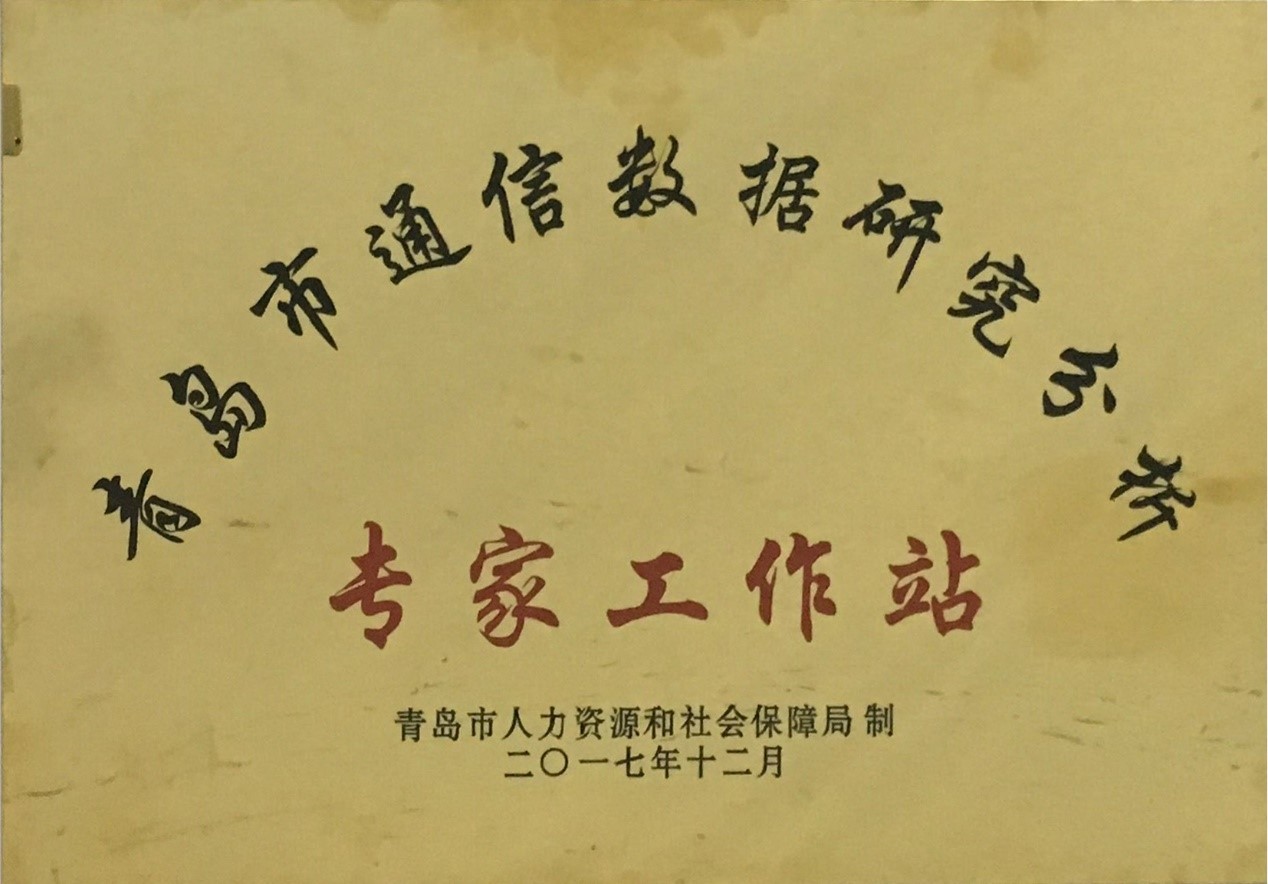 青岛市通信数据研究分析
专家工作站
青岛市人力资源和社会保障局 制
二〇一七年十二月